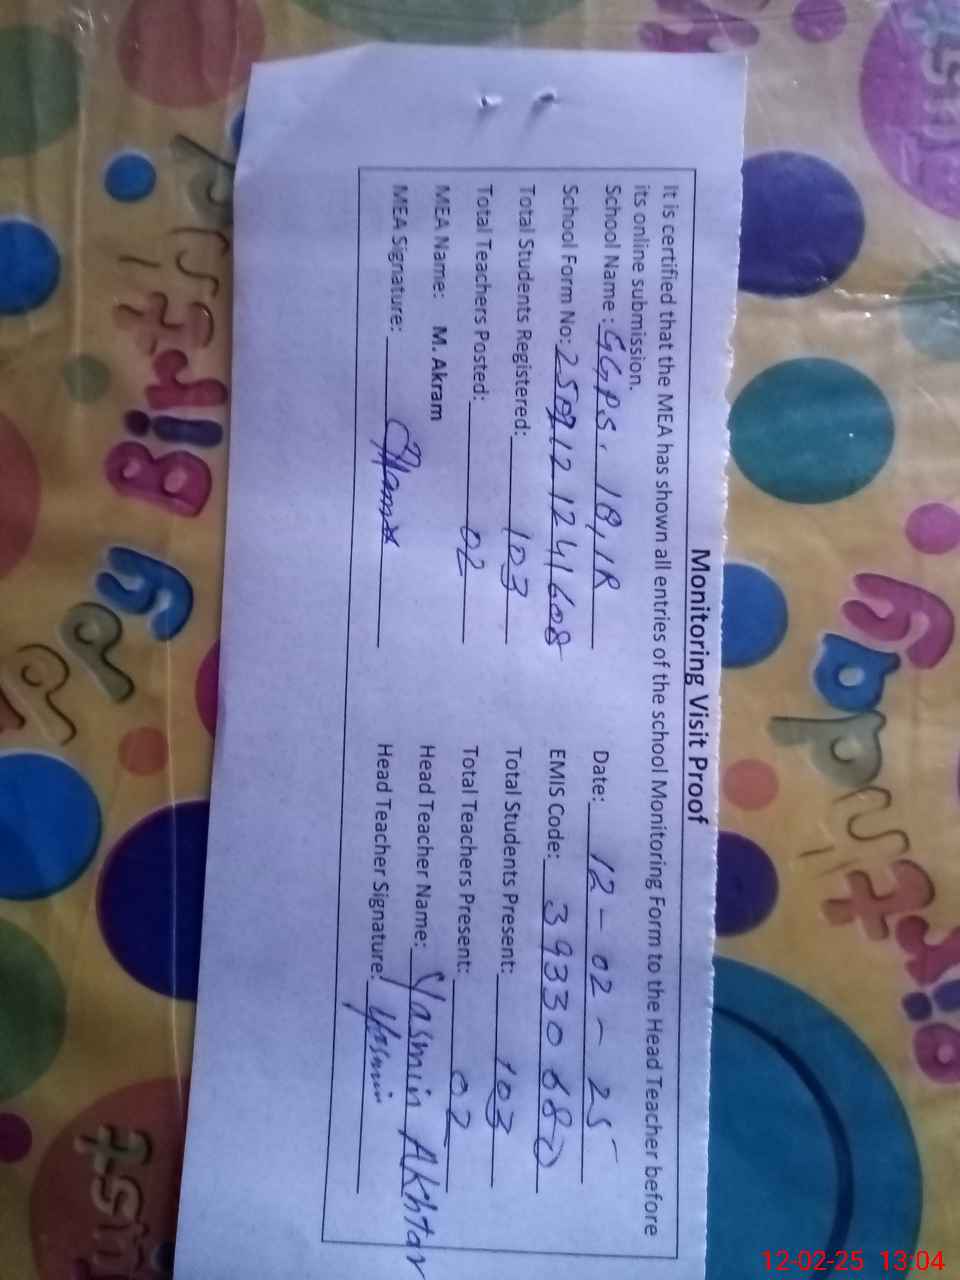 Monitoring Visit Proof
It is certified that the MEA has shown all entries of the school Monitoring Form to the Head Teacher before
its online submission.
School Name : GGPS. 18,1R Date: 12-02-25
School Form No: 1212241608 EMIS Code: 39330680
Total Students Registered: 103 Total Students Present: 103
Total Teachers Posted: 02 Total Teachers Present: 02
MEA Name: M. Akram Head Teacher Name: Yasmin Akhtar
MEA Signature: Head Teacher Signature: Yasmin
12-02-25 13:04